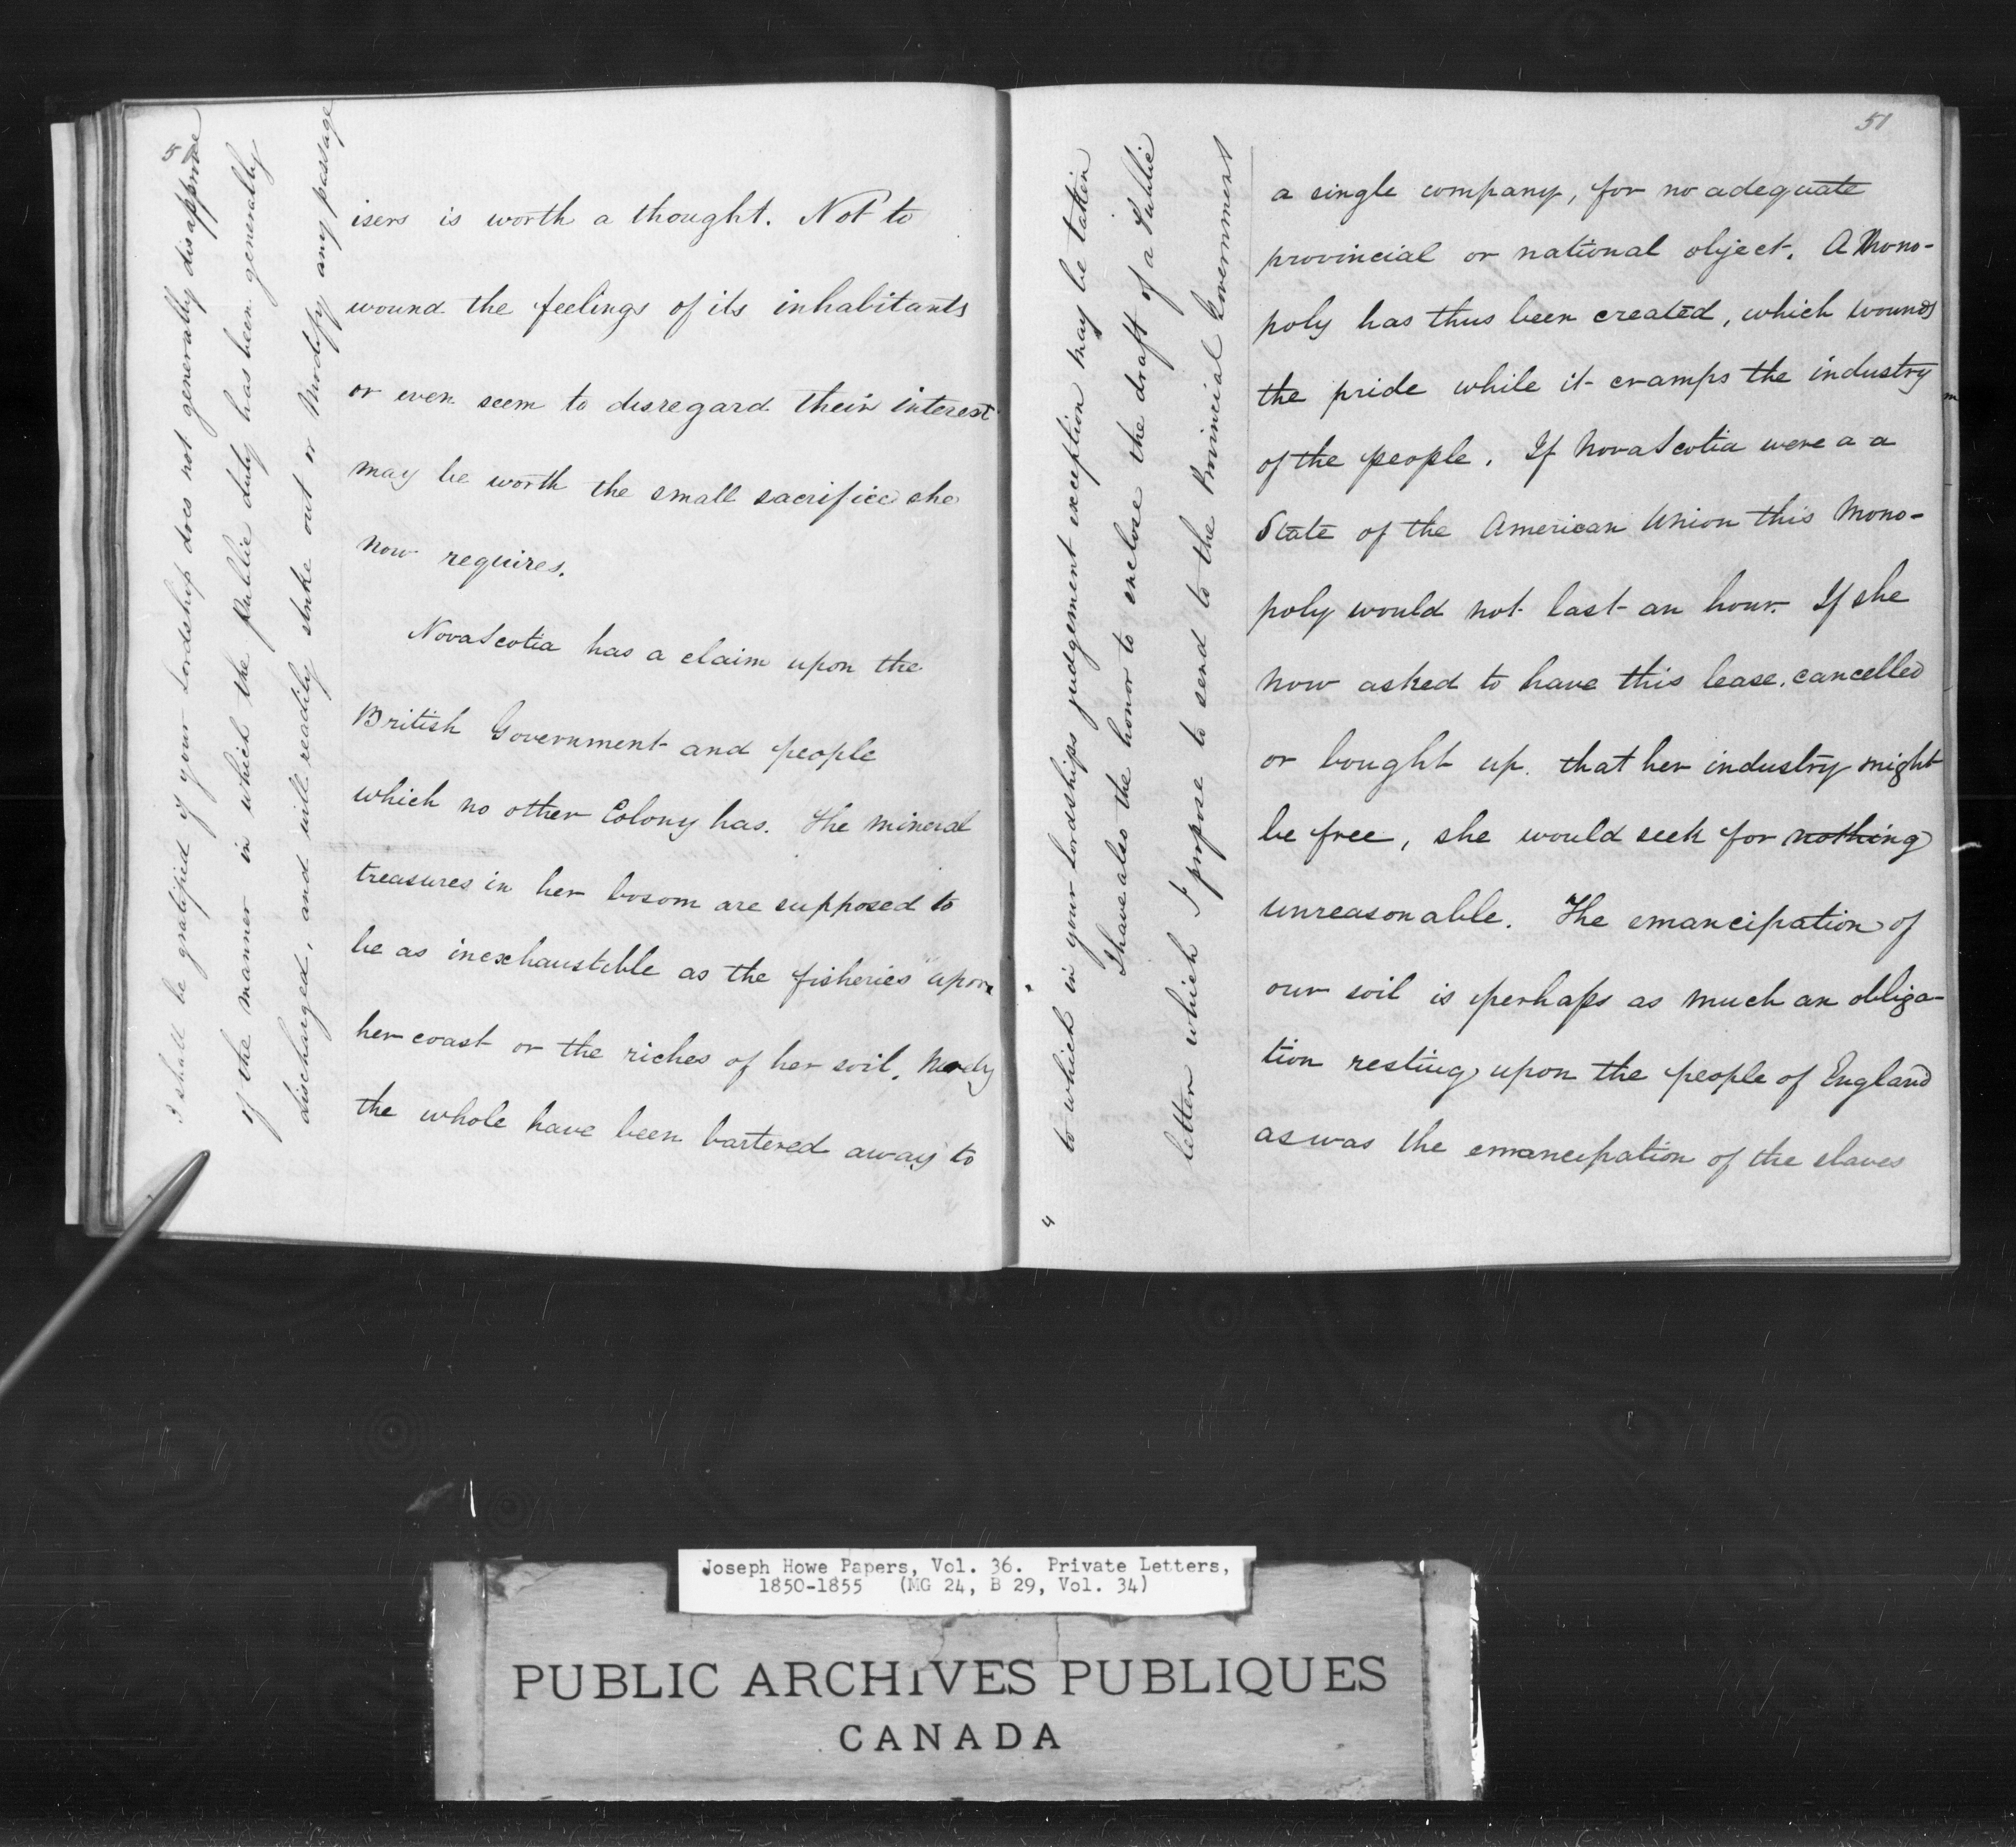 50
isers is worth a thought. Not to
wound the feelings of its inhabitants
or even seem to disregard their interest
may be worth the small sacrifice she
now requires.
NovaScotia has a claim upon the
British Government and people
which no other Colony has. The mineral
treasures in her bosom are supposed to
be as inexhaustible as the fisheries upon
her coast or the riches of her soil. Nearly
the whole have been bartered away to
I shall be gratified if your Lordship does not generally disapprove
of the manner in which the Public duty has been generally
discharged, and will readily strike out or Modify any passage
to which in your Lordships judgement exception may be taken
I have also the honor to enclose the draft of a Public
letter which I propose to send to the Provincial Government
4
51
a single company, for no adequate
provincial or national object. A Mono-
poly has thus been created, which wounds
the pride while it cramps the industry
of the people. If NovaScotia were a a
State of the American Union this Mono-
poly would not last an hour. If she
now asked to have this lease cancelled
or bought up that her industry might
be free, she would seek for nothing
unreasonable. The emancipation of
our soil is perhaps as much an obliga-
tion resting upon the people of England
as was the emancipation of the slaves
Joseph Howe Papers, Vol. 36. Private Letters,
1850-1855 (MG 24, B 29, Vol. 34)
PUBLIC ARCHIVES PUBLIQUES
CANADA